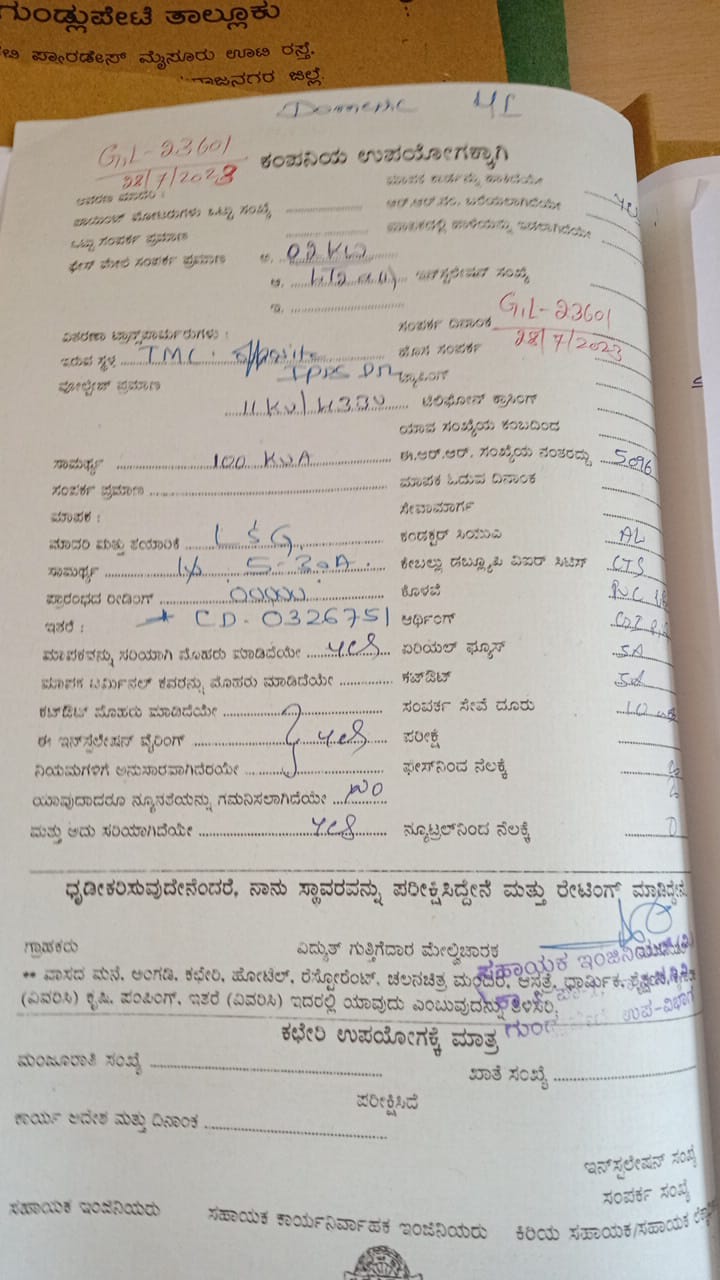 ಗುಂಡ್ಲುಪೇಟೆ ತಾಲ್ಲೂಕು
ಪ್ಯಾರಡೇಸ್ ಮೈಸೂರು ಊಟಿ ರಸ್ತೆ.
ರಾಜನಗರ ಜಿಲ್ಲೆ.
GIL-23601
28/7/2023
ಕಂಪನಿಯ ಉಪಯೋಗಕ್ಕಾಗಿ
ಆವರಣ ಮಾದರಿ :
ಮಾಪಕ ಕಾರ್ಡನ್ನು ಹಾಕಿದೆಯೇ
ಒಟ್ಟು ಸಂಖ್ಯೆ ....................
ಆರ್.ಆರ್.ನಂ. ಬರೆಯಲಾಗಿದೆಯೇ Yes
ಒಟ್ಟು ಸಂಪರ್ಕ ಪ್ರಮಾಣ ....................
ಇಡಲಾಗಿದೆಯೇ
ಫೇಸ್ ಮೇಲೆ ಸಂಪರ್ಕ ಪ್ರಮಾಣ ಅ. 02 KW
ಆ. ಇನ್‌ಸ್ಟಲೇಷನ್ ಸಂಖ್ಯೆ
ಇ. ....................
ಸಂಪರ್ಕ ದಿನಾಂಕ GIL-23601
28/7/2023
ವಿತರಣಾ ಟ್ರಾನ್ಸ್‌ಫಾರ್ಮರುಗಳು :
ಹೊಸ ಸಂಪರ್ಕ
ಇರುವ ಸ್ಥಳ TMC opposite
ವೋಲ್ಟೇಜ್ ಪ್ರಮಾಣ
ಟ್ಯಾಪಿಂಗ್
11 KV/433V ಟೆಲಿಫೋನ್ ಕ್ರಾಸಿಂಗ್
ಯಾವ ಸಂಖ್ಯೆಯ ಕಂಬದಿಂದ
ಸಾಮರ್ಥ್ಯ 100 KVA
ಈ.ಆರ್.ಆರ್. ಸಂಖ್ಯೆಯ ನಂತರದ್ದು 5096
ಸಂಪರ್ಕ ಪ್ರಮಾಣ ....................
ಮಾಪಕ ಓದುವ ದಿನಾಂಕ
ಮಾಪಕ :
ಸೇವಾಮಾರ್ಗ
ಮಾದರಿ ಮತ್ತು ತಯಾರಿಕೆ L&G
ಕಂಡಕ್ಟರ್ ಸಿಯುವಿ AL
ಸಾಮರ್ಥ್ಯ 5-30A.
ಕೇಬಲ್ಲು ಡಬ್ಲ್ಯೂಪಿ ವಿಐಆರ್ ಸಿಟಿಸ್ CTS
ಪ್ರಾರಂಭದ ರೀಡಿಂಗ್ 00000
ಕೊಳವೆ PVC
ಇತರೆ : CD-0326751
ಅರ್ಥಿಂಗ್
ಮಾಪಕವನ್ನು ಸರಿಯಾಗಿ ಮೊಹರು ಮಾಡಿದೆಯೇ Yes
ಏರಿಯಲ್ ಫ್ಯೂಸ್ 5A
ಮಾಪಕ ಟರ್ಮಿನಲ್ ಕವರನ್ನು ಮೊಹರು ಮಾಡಿದೆಯೇ ..............
ಕಟ್‌ಔಟ್ 5A
ಕಟ್‌ಔಟ್ ಮೊಹರು ಮಾಡಿದೆಯೇ
ಸಂಪರ್ಕ ಸೇವೆ ದೂರು 10
ಈ ಇನ್‌ಸ್ಟಲೇಷನ್ ವೈರಿಂಗ್ Yes
ಪರೀಕ್ಷೆ
ನಿಯಮಗಳಿಗೆ ಅನುಸಾರವಾಗಿದೆಯೇ
ಫೇಸ್‌ನಿಂದ ನೆಲಕ್ಕೆ
ಯಾವುದಾದರೂ ನ್ಯೂನತೆಯನ್ನು ಗಮನಿಸಲಾಗಿದೆಯೇ NO
ಮತ್ತು ಅದು ಸರಿಯಾಗಿದೆಯೇ Yes
ನ್ಯೂಟ್ರಲ್‌ನಿಂದ ನೆಲಕ್ಕೆ
ಧೃಡೀಕರಿಸುವುದೇನೆಂದರೆ, ನಾನು ಸ್ಥಾವರವನ್ನು ಪರೀಕ್ಷಿಸಿದ್ದೇನೆ ಮತ್ತು ರೇಟಿಂಗ್ ಮಾಡಿದ್ದೇನೆ
ಗ್ರಾಹಕರು ವಿದ್ಯುತ್ ಗುತ್ತಿಗೆದಾರ ಮೇಲ್ವಿಚಾರಕ
ಸಹಾಯಕ ಇಂಜಿನಿಯರ್
** ವಾಸದ ಮನೆ, ಅಂಗಡಿ, ಕಛೇರಿ, ಹೋಟೆಲ್, ರೆಸ್ಟೋರೆಂಟ್, ಚಲನಚಿತ್ರ ಮಂದಿರ, ಆಸ್ಪತ್ರೆ, ಧಾರ್ಮಿಕ,
(ವಿವರಿಸಿ) ಕೃಷಿ, ಪಂಪಿಂಗ್, ಇತರೆ (ವಿವರಿಸಿ) ಇದರಲ್ಲಿ ಯಾವುದು ಎಂಬುವುದನ್ನು ತಿಳಿಸಿರಿ.
ಉಪ-ವಿಭಾಗ
ಕಛೇರಿ ಉಪಯೋಗಕ್ಕೆ ಮಾತ್ರ
ಮಂಜೂರಾತಿ ಸಂಖ್ಯೆ ....................
ಖಾತೆ ಸಂಖ್ಯೆ ....................
ಪರೀಕ್ಷಿಸಿದೆ
ಕಾರ್ಯ ಆದೇಶ ಮತ್ತು ದಿನಾಂಕ ....................
ಇನ್‌ಸ್ಟಲೇಷನ್ ಸಂಖ್ಯೆ
ಸಂಪರ್ಕ ಸಂಖ್ಯೆ
ಸಹಾಯಕ ಇಂಜಿನಿಯರು ಸಹಾಯಕ ಕಾರ್ಯನಿರ್ವಾಹಕ ಇಂಜಿನಿಯರು ಕಿರಿಯ ಸಹಾಯಕ/ಸಹಾಯಕ